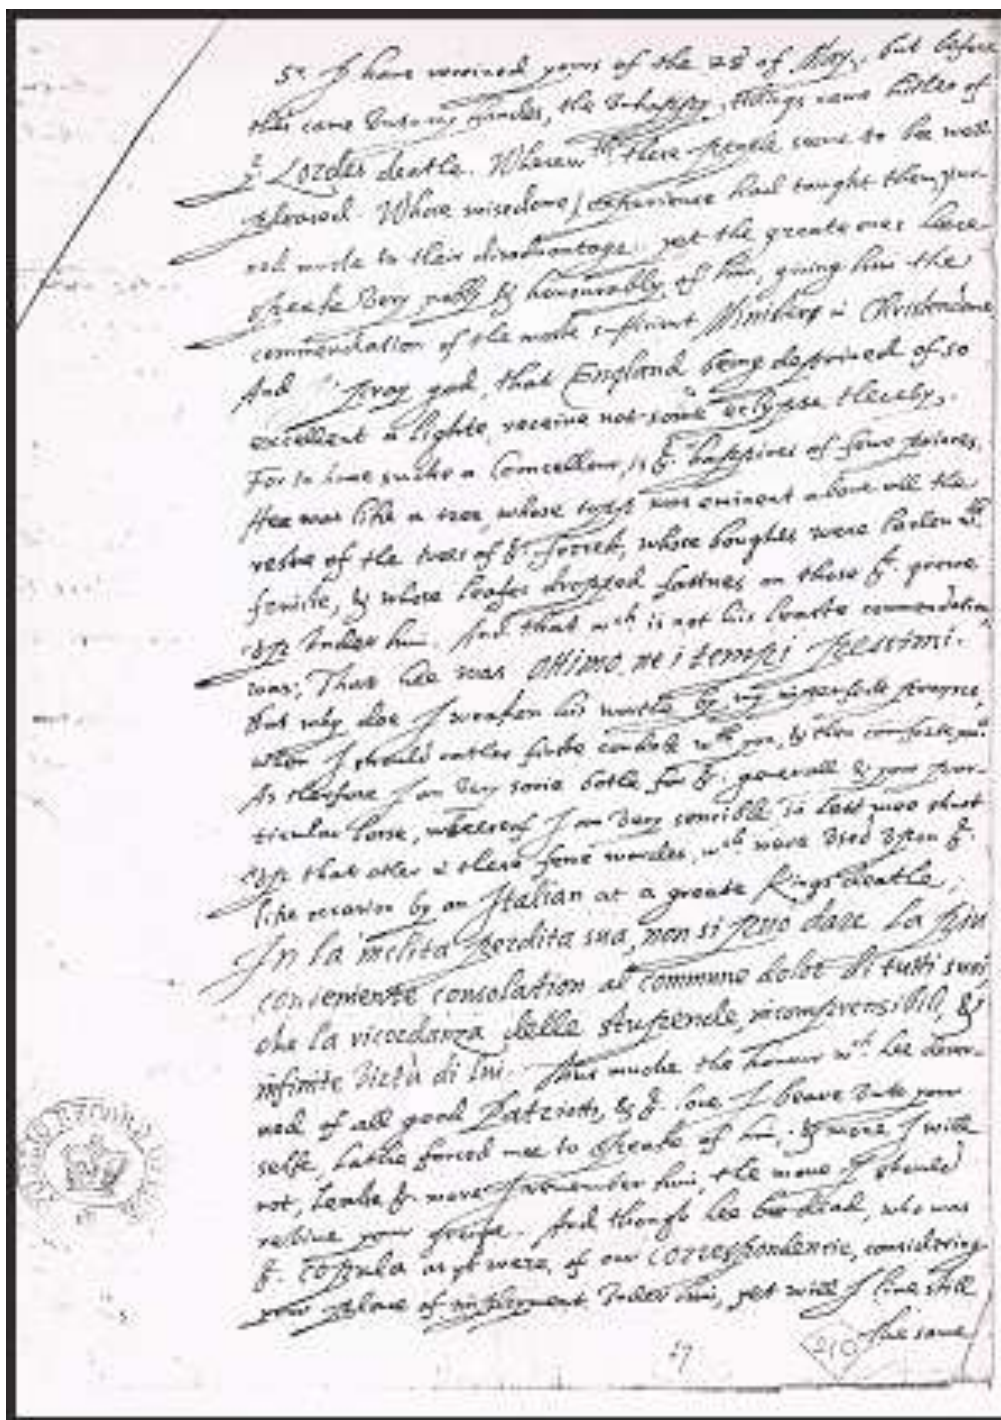 Sr. I have received yours of the 28 of May, but before
this came unto my handes, the unhappy tidings came hither of
yr Lordes deathe. Wherewth these people seeme to be well
pleased. Whose wisedome & experience had taught them,
not to their disadvantage. yet the greate ones heere
speake very nobly & honourably of him, giving him the
commendation of the moste sufficient Minister in Christendome
And I pray god, that England being deprived of so
excellent a lighte, receive not some eclypse thereby.
For to have suche a Councellour, is ye happines of fewe princes.
Hee was like a tree, whose topp was eminent above all the
reste of the trees of ye forest, whose boughes were laden wth
fruite, & whose leafes dropped fattnes on those yt growe
upp under him. And that wch is not his leaste commendation
was, That hee was ottimo, ne i tempi pessimi.
But why doe I weaken his worthe by my imperfect prayses,
when I should rather firste condole wth you, & then comforte you.
As therfore I am very sorie bothe for ye generall & your par-
ticular losse, whereof I am very sensible so lett mee shutt
upp that other in these fewe wordes, wch were used upon ye
like occasion by an Italian at a greate Kings deathe;
In la inclita perdita sua, non si puo dare la piu
conveniente consolation al commune dolor di tutti suoi
che la ricordanza delle stupende, incomprensibili, &
infinite virtù di lui. Thus muche the honour wch hee deser-
ved of all good Patriots, & ye love I beare unto your
selfe, hathe forced mee to speake of him; & more I will
not, leaste ye more I remember him, the more I should
revive your griefe. And though hee bee dead, who was
ye copula as yt were, of our correspondencie, considering
your place of imployment under him, yet will I live still
the same
17
210